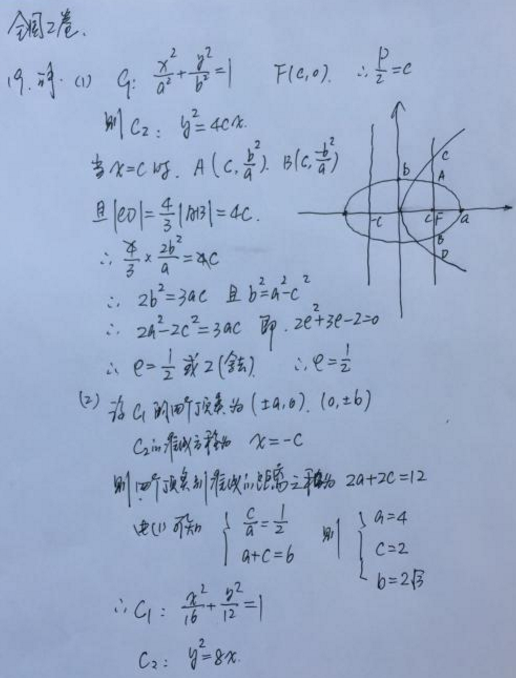 全国2卷.
19. 解. (1) C₁: x²/a² + y²/b² = 1 F(c,0). ∴ p/2 = c
则 C₂: y² = 4cx.
当 x=c 时. A(c, b²/a). B(c, b²/a)
且 |CD| = 4/3 |AB| = 4c.
∴ 4/3 × 2b²/a = 4c
∴ 2b² = 3ac 且 b² = a² - c²
∴ 2a² - 2c² = 3ac 即. 2e² + 3e - 2 = 0
∴ e = 1/2 或 2 (舍去). ∴ e = 1/2
b C A -c c F a B D
(2) 设 C₁ 的四个顶点为 (±a,0). (0,±b)
C₂的准线方程为 x = -c
则四个顶点到准线的距离之和为 2a+2c=12
由(1)可知 { c/a = 1/2 a+c=6 则 { a=4 c=2 b=2√3
∴ C₁: x²/16 + y²/12 = 1
C₂: y² = 8x.